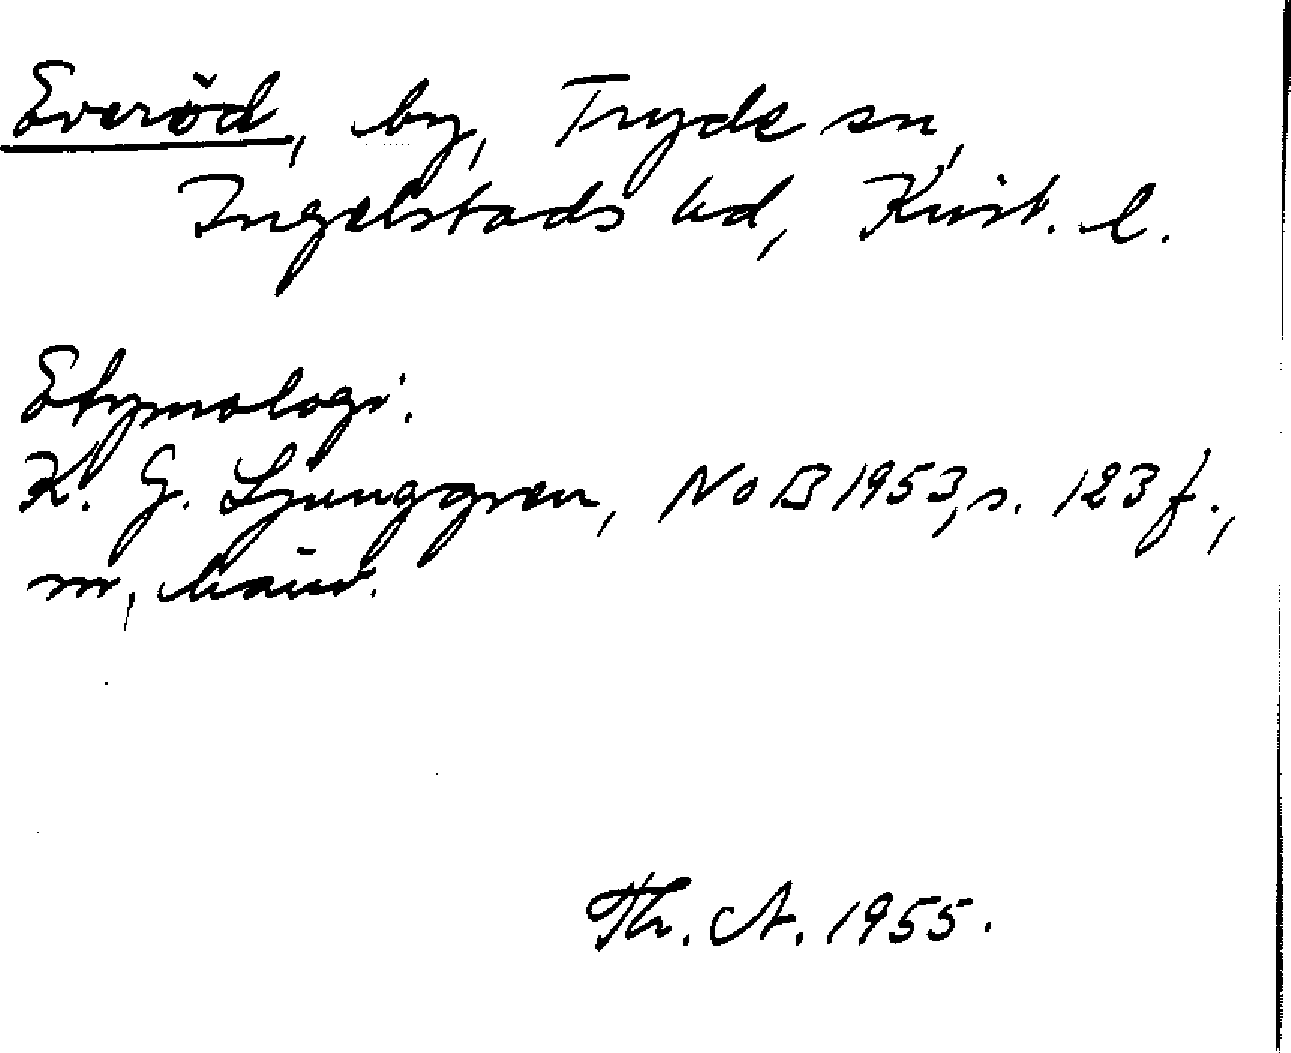 Everöd, by, Tryde sn,
Ingelstads hd, Krist. l.
Etymologi.
K. G. Ljunggren, NoB 1953, s. 123 f.,
m. hänv.
Th. A. 1955.